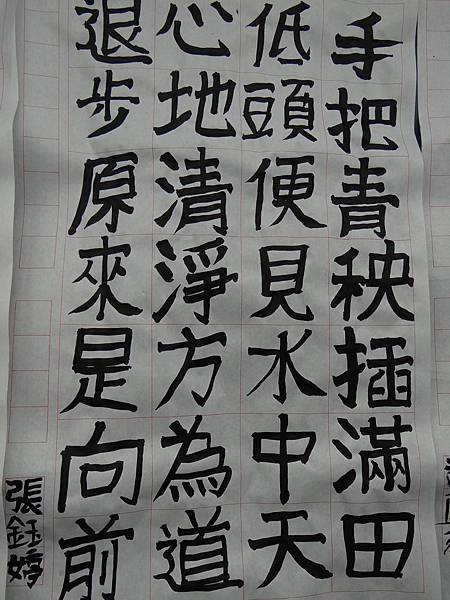 手把青秧插滿田
低頭便見水中天
心地清淨方為道
退步原來是向前
張鈺婷